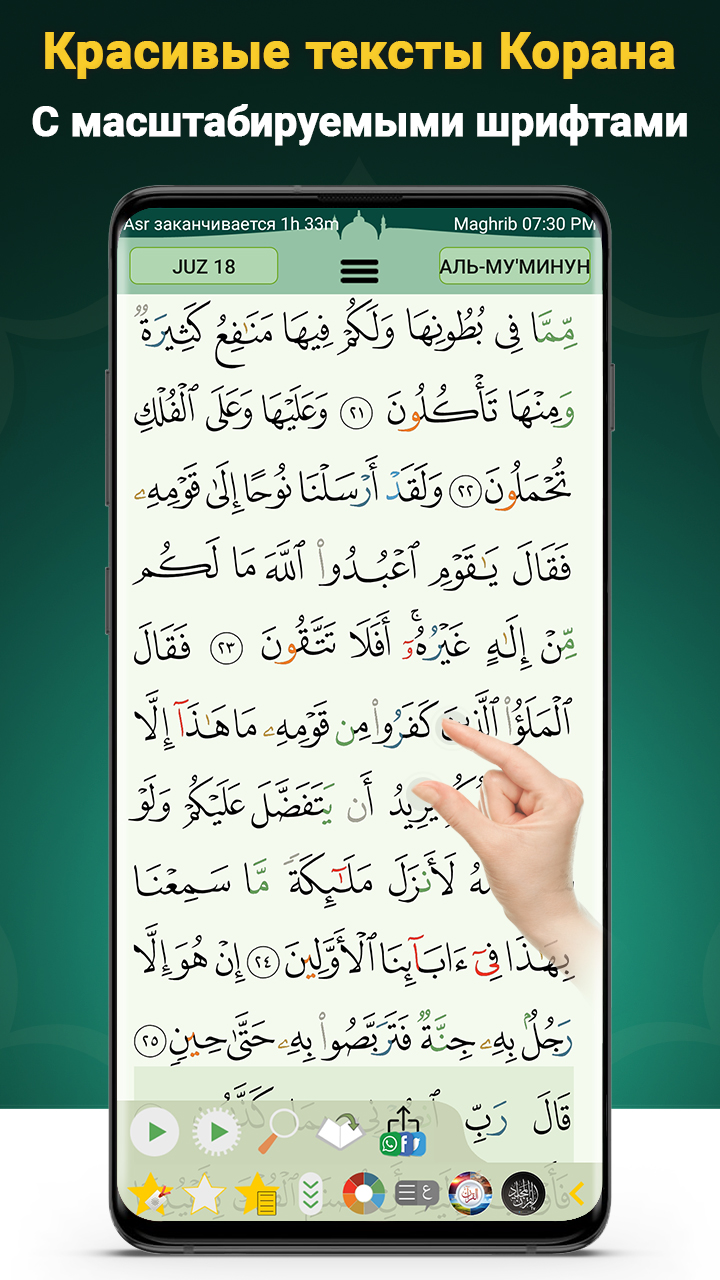 Красивые тексты Корана
С масштабируемыми шрифтами
Asr заканчивается 1h 33m
Maghrib 07:30 PM
JUZ 18
АЛЬ-МУ'МИНУН
مِّمَّا فِى بُطُونِهَا وَلَكُمْ فِيهَا مَنَـٰفِعُ كَثِيرَةٌ
وَمِنْهَا تَأْكُلُونَ ٢١ وَعَلَيْهَا وَعَلَى ٱلْفُلْكِ
تُحْمَلُونَ ٢٢ وَلَقَدْ أَرْسَلْنَا نُوحًا إِلَىٰ قَوْمِهِۦ
فَقَالَ يَـٰقَوْمِ ٱعْبُدُوا۟ ٱللَّهَ مَا لَكُم
مِّنْ إِلَـٰهٍ غَيْرُهُۥٓ ۚ أَفَلَا تَتَّقُونَ ٢٣ فَقَالَ
ٱلْمَلَؤُا۟ ٱلَّذِينَ كَفَرُوا۟ مِن قَوْمِهِۦ مَا هَـٰذَآ إِلَّا
يُرِيدُ أَن يَتَفَضَّلَ عَلَيْكُمْ وَلَوْ
لَأَنزَلَ مَلَـٰٓئِكَةً مَّا سَمِعْنَا
بِهَـٰذَا فِىٓ ءَابَآئِنَا ٱلْأَوَّلِينَ ٢٤ إِنْ هُوَ إِلَّا
رَجُلٌۢ بِهِۦ جِنَّةٌ فَتَرَبَّصُوا۟ بِهِۦ حَتَّىٰ حِينٍ ٢٥
قَالَ رَبِّ